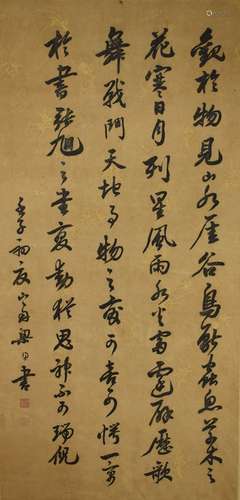 觀於物見山水厓谷鳥獸蟲魚草木之
花實日月列星風雨水火雷霆霹靂歌
舞戰鬥天地事物之變可喜可愕一寓
於書張旭之書變動猶鬼神不可端倪
壬子初夏山舟梁同書